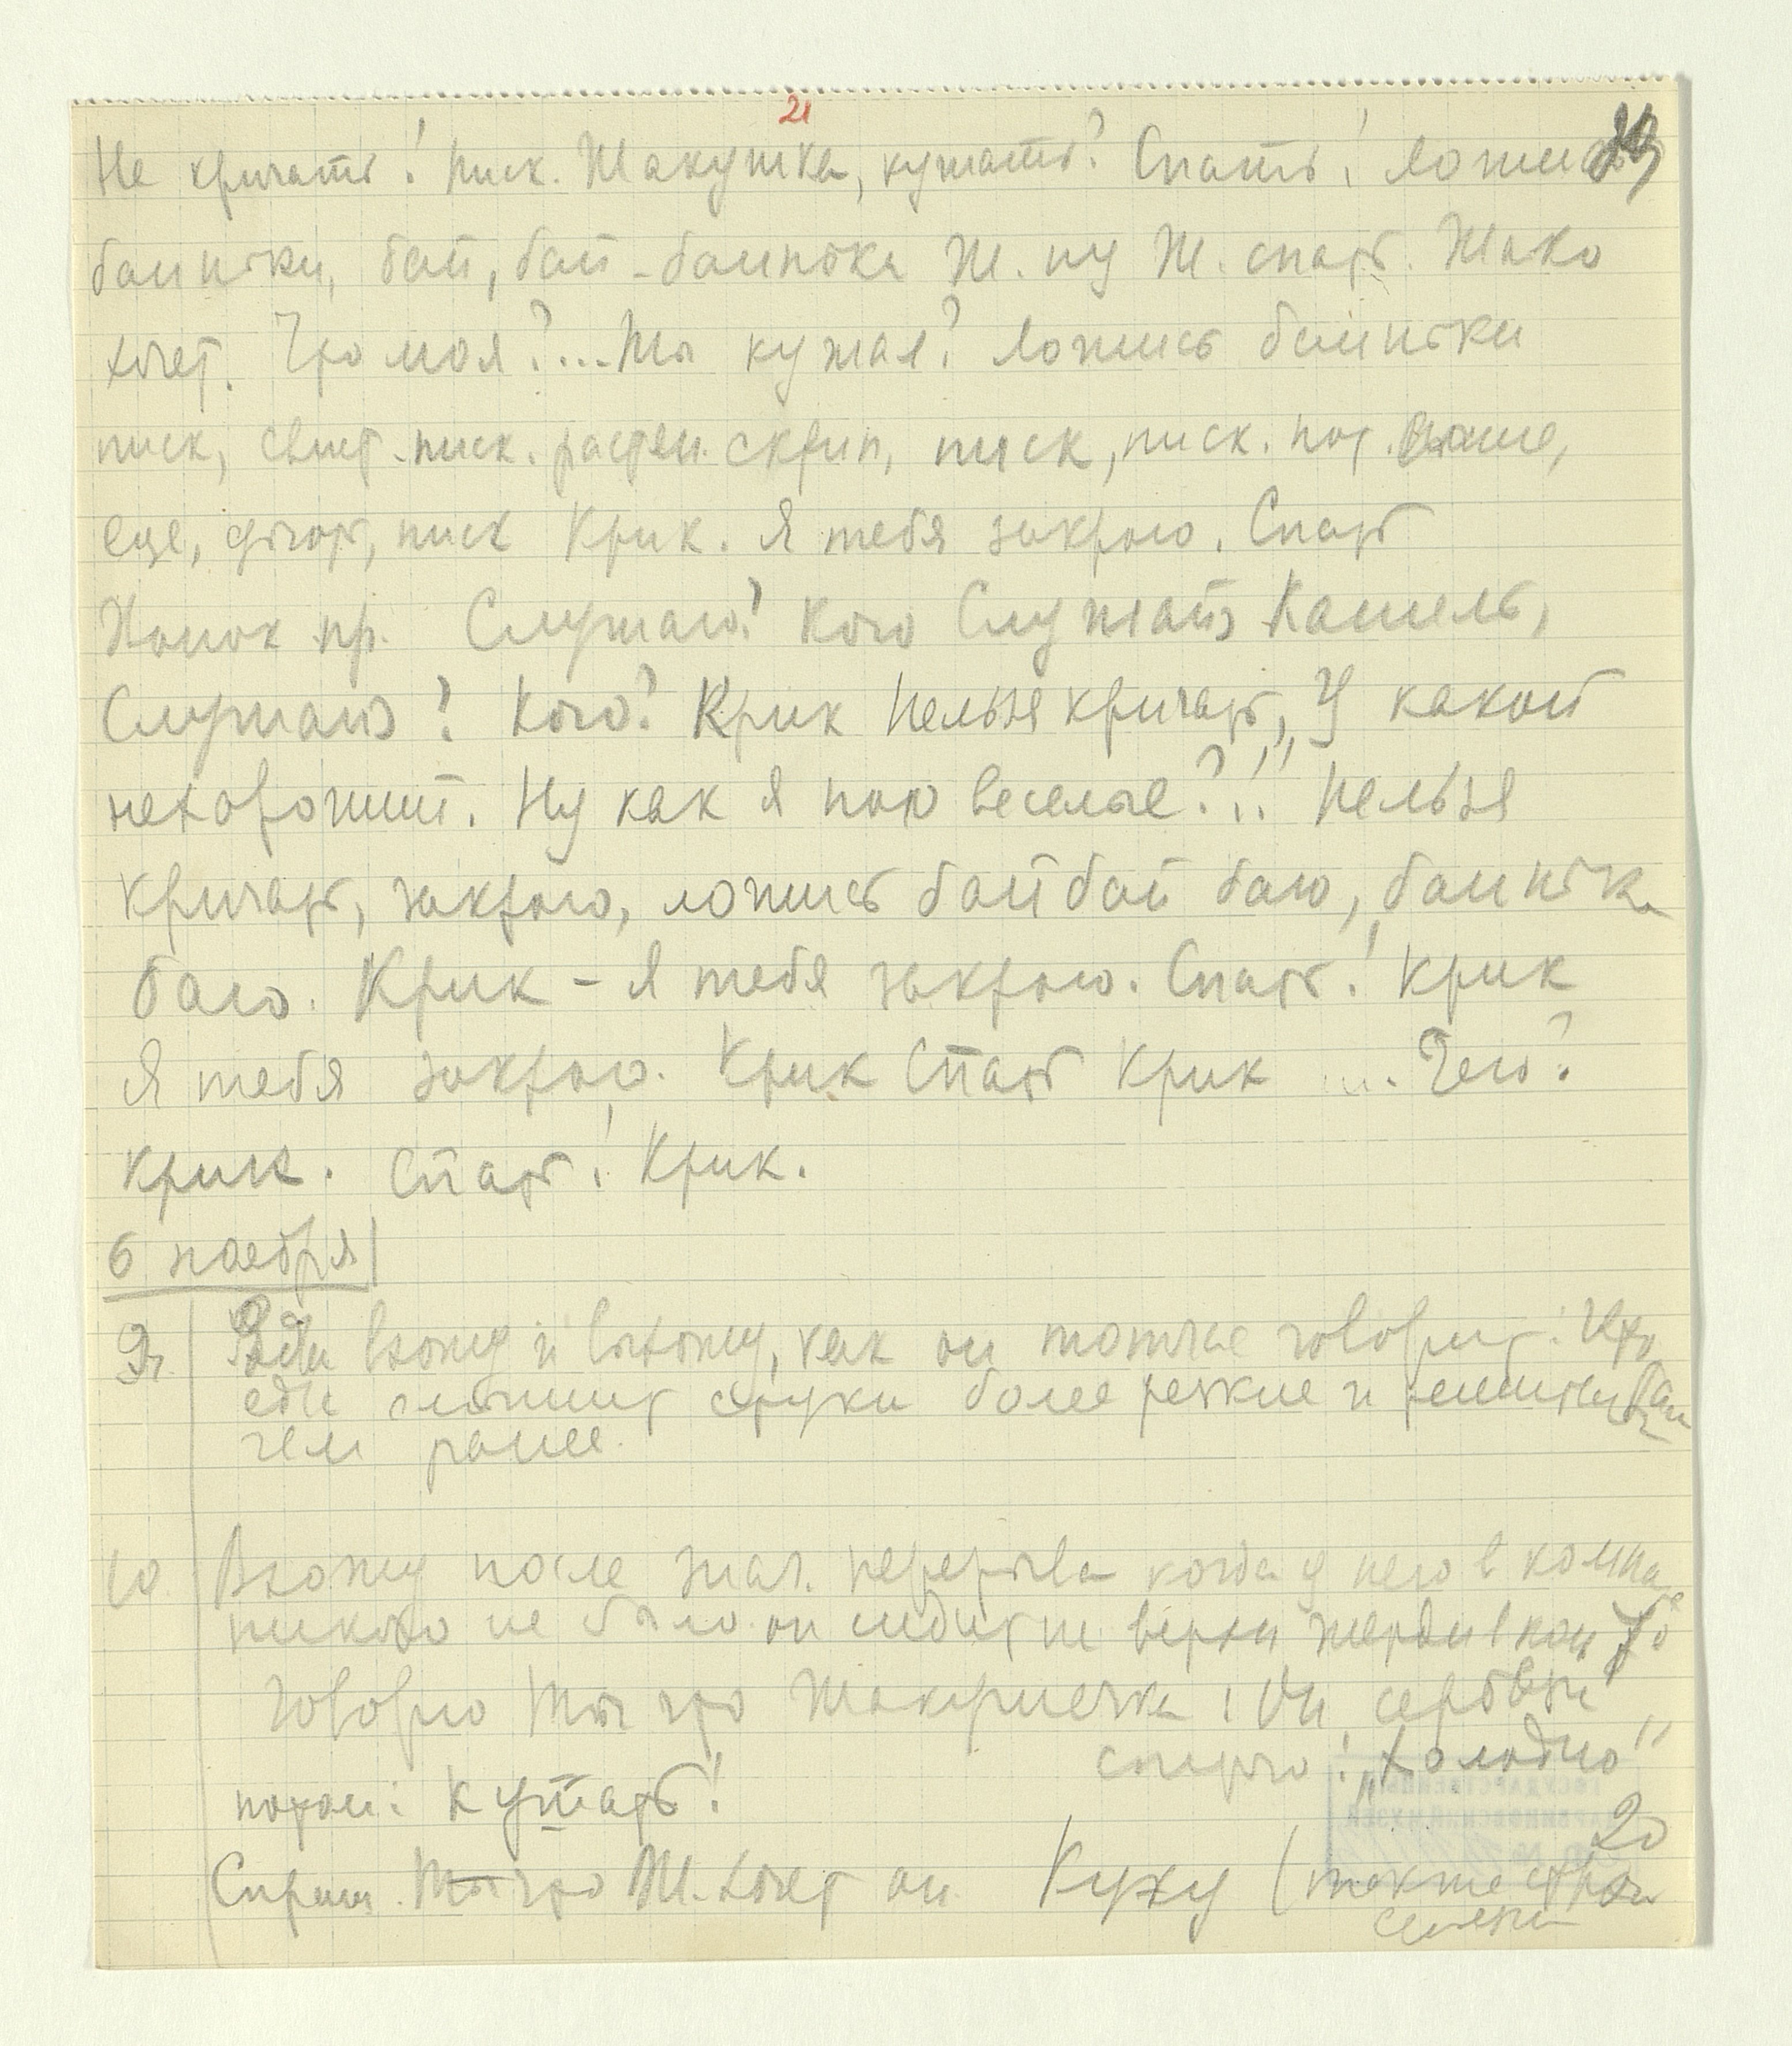 21
Не кричать! Писк. Жакушка, кушать? Спать! Ложись
баиньки, бай, бай-баинька Ж. ну Ж. спать. Жако
хочет. Что моя?... Ты кушал? Ложись баиньки
писк, свист. писк. скрип, писк, писк. пот.
еще, писк Крик. Я тебя закрою. Спать
пр. Слушаю! Кого Слушаю Кашель,
Слушаю? Кого? Крик Нельзя кричать, У какой
нехороший. Ну как я пою веселые?!! Нельзя
кричать, закрою, ложись бай бай баю, баинька
баю. Крик - Я тебя закрою. Спать! Крик
Я тебя закрою. Крик Спать Крик ... Чего?
Крик. Спать! Крик.
6 ноября
9 ч. вхожу и выхожу, как он тотчас говорит: Что
едва слышит стуки более резкие и
чем ранее.
10. Вхожу после знач. перерыва когда у него в комнате
никого не было. он сидит на верхн жерди
Говорю Ты что Жакушечка! Он серьезн
спирто: „Холодно"
потом: Кушать!
20
Спраш. Ты что Ж. хочет он Кужу (также